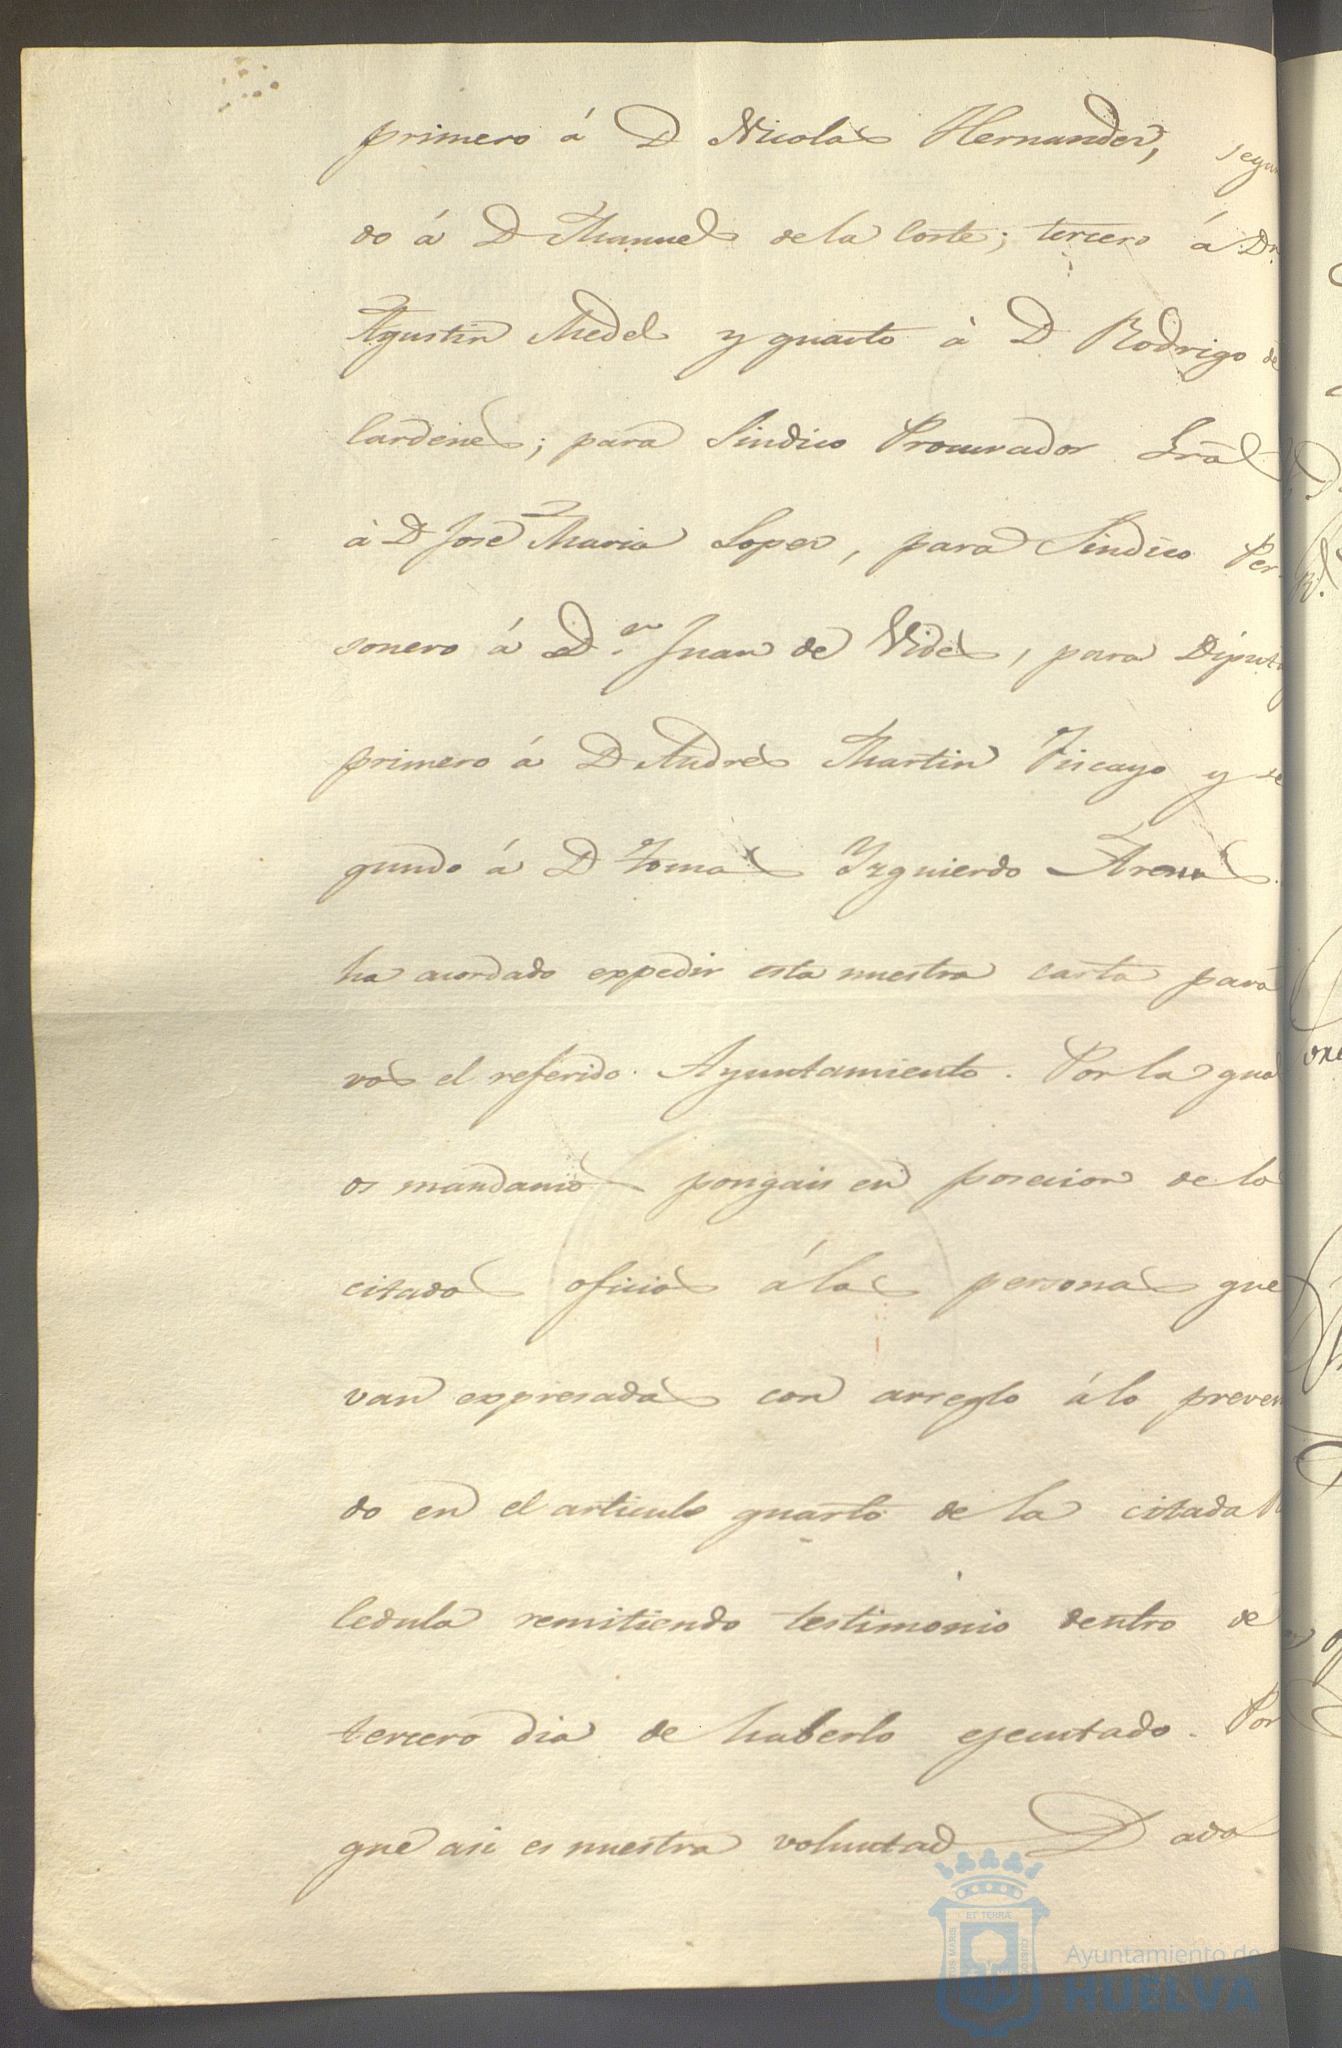 primero á D Nicolas Hernandez, segun
do á D Manuel de la Corte; tercero á Dn
Agustin Medel y quarto à D Rodrigo de
Cardenes; para Sindico Procurador Gral
à D José Maria Lopez, para Sindico Per-
sonero á D.n Juan de Vides, para Diputo
primero á D Andres Martin Viscayo y se
gundo á D Tomas Izquierdo Arenas.
ha acordado expedir esta nuestra carta para
vos el referido Ayuntamiento. Por la qual
os mandamos pongais en posecion de los
citados oficios á las personas que
van expresadas con arreglo á lo preveni
do en el articulo quarto de la citada
Cedula remitiendo testimonio dentro de
tercero dia de haberlo ejecutado. Por
que asi es nuestra voluntad Dado
ET TERRÆ
Ayuntamiento de
HUELVA